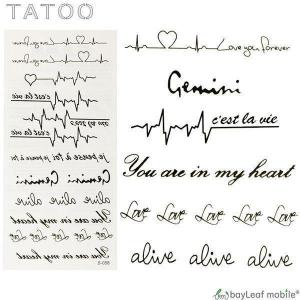 TATOO
Love you forever
Love you forever
c'est la vie
c'est la vie
je pense à toi, je pense à toi
Gemini Gemini
alive alive alive
You are in my heart
Love Love Love Love Love
You are in my heart
S-058
Love you forever
Gemini
c'est la vie
You are in my heart
Love Love Love Love Love
alive alive alive
bayLeaf mobile®